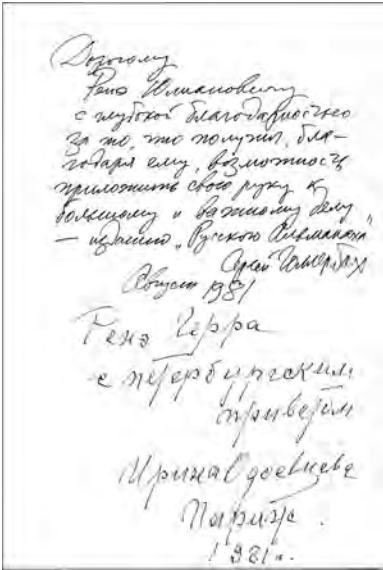 Дорогому
Ренэ Юлиановичу
с глубокой благодарностью
за то, что получил, бла-
годаря ему, возможность
приложить свою руку к
большому и важному делу
— изданию „Русского Альманаха“
Сергей Голлербах
Август 1981
Ренэ Герра
с петербургским
приветом
Ирина Одоевцева
Париж.
1981 г.